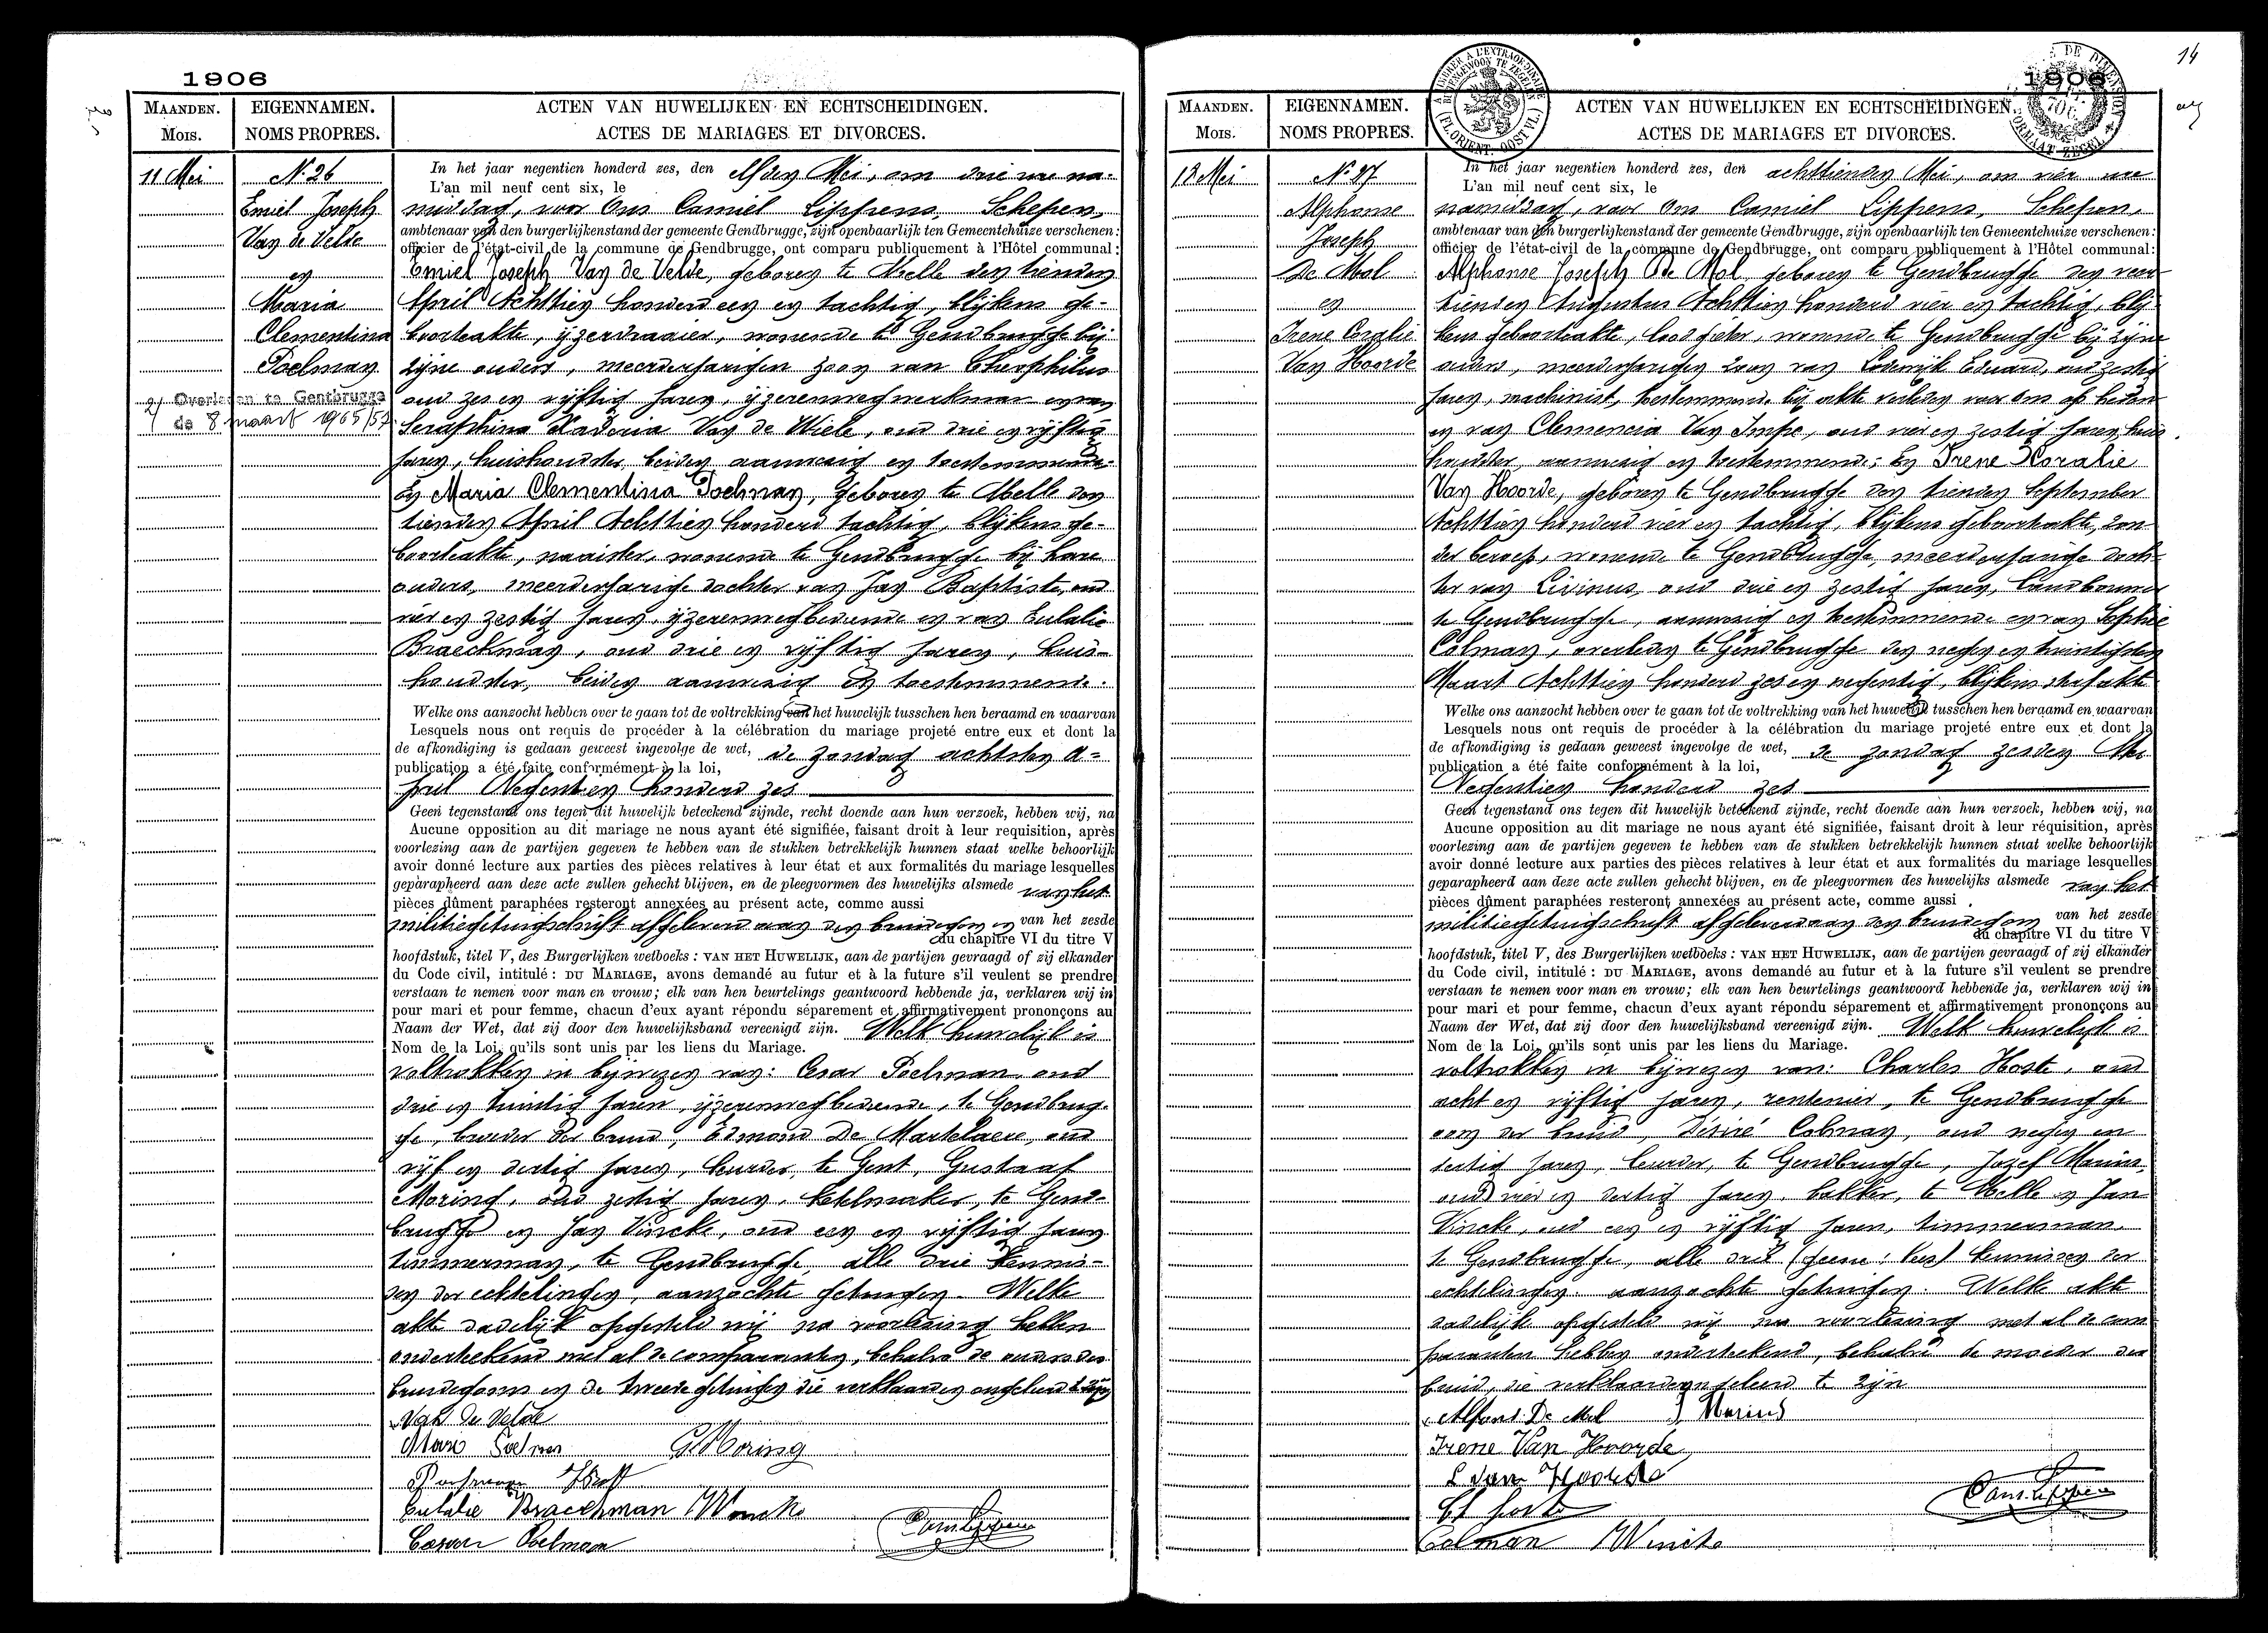 1906
MAANDEN.
Mois.
EIGENNAMEN.
NOMS PROPRES.
ACTEN VAN HUWELIJKEN EN ECHTSCHEIDINGEN.
ACTES DE MARIAGES ET DIVORCES.
11 Mei
N. 26
Emiel Joseph
Van de Velde
en
Maria
Clementina
Poelman
2/ Overleden te Gentbrugge
de 8 maart 1965/57
In het jaar negentien honderd zes, den elfden Mei, om drie ure na-
L'an mil neuf cent six, le
middag, voor Ons Camiel Lippens, Schepen,
ambtenaar van den burgerlijkenstand der gemeente Gendbrugge, zijn openbaarlijk ten Gemeentehuize verschenen:
officier de l'état-civil de la commune de Gendbrugge, ont comparu publiquement à l'Hôtel communal:
Emiel Joseph Van de Velde, geboren te Melle den tienden
April Achttien honderd een en tachtig, blijkens ge-
boorteakte, ijzerdraaier, wonende te Gendbrugge bij
zijne ouders, meerderjarigen zoon van Theophilus
oud zes en vijftig jaren, ijzerenwegwerkman en van
Seraphina Van de Wiele, oud drie en vijftig
jaren, huishoudster, beiden aanwezig en toestemmende.
En Maria Clementina Poelman, geboren te Melle den
tienden April Achttien honderd tachtig, blijkens ge-
boorteakte, naaister, wonende te Gendbrugge bij hare
ouders, meerderjarige dochter van Jan Baptiste, oud
vier en zestig jaren, ijzerenwegbediende en van Eulalie
Braeckman, oud drie en vijftig jaren, huis-
houdster, beiden aanwezig en toestemmende.
Welke ons aanzocht hebben over te gaan tot de voltrekking van het huwelijk tusschen hen beraamd en waarvan
Lesquels nous ont requis de procéder à la célébration du mariage projeté entre eux et dont la
de afkondiging is gedaan geweest ingevolge de wet, de zondag achtsten A-
publication a été faite conformément à la loi,
pril Negentien honderd zes
Geen tegenstand ons tegen dit huwelijk beteekend zijnde, recht doende aan hun verzoek, hebben wij, na
Aucune opposition au dit mariage ne nous ayant été signifiée, faisant droit à leur requisition, après
voorlezing aan de partijen gegeven te hebben van de stukken betrekkelijk hunnen staat welke behoorlijk
avoir donné lecture aux parties des pièces relatives à leur état et aux formalités du mariage lesquelles
geparapheerd aan deze acte zullen gehecht blijven, en de pleegvormen des huwelijks alsmede van het
pièces dûment paraphées resteront annexées au présent acte, comme aussi
militiegetuigschrift afgeleverd aan den bruidegom en van het zesde
du chapitre VI du titre V
hoofdstuk, titel V, des Burgerlijken wetboeks: VAN HET HUWELIJK, aan de partijen gevraagd of zij elkander
du Code civil, intitulé: DU MARIAGE, avons demandé au futur et à la future s'il veulent se prendre
verstaan te nemen voor man en vrouw; elk van hen beurtelings geantwoord hebbende ja, verklaren wij in
pour mari et pour femme, chacun d'eux ayant répondu séparement et affirmativement prononçons au
Naam der Wet, dat zij door den huwelijksband vereenigd zijn. Welk huwelijk is
Nom de la Loi, qu'ils sont unis par les liens du Mariage.
voltrokken in bijwezen van: Cesar Poelman, oud
drie en twintig jaren, ijzerenwegbediende, te Gendbrug-
ge, broeder der bruid, Edmond De Martelaere, oud
vijf en dertig jaren, leurder, te Gent, Gustaaf
Moring, oud zestig jaren, ketelmaker, te Gend-
brugge en Jan Vincke, oud een en vijftig jaren
timmerman, te Gendbrugge, alle drie kennis-
sen der echtelingen, aanzochte getuigen. Welke
akte dadelijk opgesteld wij na voorlezing hebben
onderteekend met al de comparanten, behalve de ouders des
bruidegoms en de tweede getuigen die verklaarden ongeleerd te zijn
Van de Velde
Marie Poelman G. Moring
Poelman
Eulalie Braeckman J Wincke
Cesar Poelman
14
1906
MAANDEN.
Mois.
EIGENNAMEN.
NOMS PROPRES.
ACTEN VAN HUWELIJKEN EN ECHTSCHEIDINGEN.
ACTES DE MARIAGES ET DIVORCES.
18 Mei
N. 27
Alphonse
Joseph
De Mol
en
Irene Coralie
Van Hoorde
In het jaar negentien honderd zes, den achttienden Mei, om vier ure
L'an mil neuf cent six, le
namiddag, voor Ons Camiel Lippens, Schepen,
ambtenaar van den burgerlijkenstand der gemeente Gendbrugge, zijn openbaarlijk ten Gemeentehuize verschenen:
officier de l'état-civil de la commune de Gendbrugge, ont comparu publiquement à l'Hôtel communal:
Alphonse Joseph De Mol, geboren te Gendbrugge den veer-
tienden Augustus Achttien honderd vier en tachtig, blij-
kens geboorteakte, loodgieter, wonende te Gendbrugge bij zijne
ouders, meerderjarigen zoon van Lodewijk Eduard, oud zestig
jaren, machinist, toestemmende bij akte verleden voor ons op heden
en van Clemencia Van Impe, oud vier en zestig jaren, huis-
houdster, aanwezig en toestemmende; En Irene Koralie
Van Hoorde, geboren te Gendbrugge den tienden September
Achttien honderd vier en tachtig, blijkens geboorteakte, zon-
der beroep, wonende te Gendbrugge, meerderjarige doch-
ter van Livinus, oud drie en zestig jaren, landbouwer
te Gendbrugge, aanwezig en toestemmende en van Sophie
Colman, overleden te Gendbrugge den negen en twintigsten
Maart Achttien honderd zes en negentig, blijkens sterfakte
Welke ons aanzocht hebben over te gaan tot de voltrekking van het huwelijk tusschen hen beraamd en waarvan
Lesquels nous ont requis de procéder à la célébration du mariage projeté entre eux et dont la
de afkondiging is gedaan geweest ingevolge de wet, de zondag zesden Mei
publication a été faite conformément à la loi,
Negentien honderd zes
Geen tegenstand ons tegen dit huwelijk beteekend zijnde, recht doende aan hun verzoek, hebben wij, na
Aucune opposition au dit mariage ne nous ayant été signifiée, faisant droit à leur réquisition, après
voorlezing aan de partijen gegeven te hebben van de stukken betrekkelijk hunnen staat welke behoorlijk
avoir donné lecture aux parties des pièces relatives à leur état et aux formalités du mariage lesquelles
geparapheerd aan deze acte zullen gehecht blijven, en de pleegvormen des huwelijks alsmede van het
pièces dûment paraphées resteront annexées au présent acte, comme aussi
militiegetuigschrift afgeleverd aan den bruidegom van het zesde
du chapitre VI du titre V
hoofdstuk, titel V, des Burgerlijken wetboeks: VAN HET HUWELIJK, aan de partijen gevraagd of zij elkander
du Code civil, intitulé: DU MARIAGE, avons demandé au futur et à la future s'il veulent se prendre
verstaan te nemen voor man en vrouw; elk van hen beurtelings geantwoord hebbende ja, verklaren wij in
pour mari et pour femme, chacun d'eux ayant répondu séparement et affirmativement prononçons au
Naam der Wet, dat zij door den huwelijksband vereenigd zijn. Welk huwelijk is
Nom de la Loi, qu'ils sont unis par les liens du Mariage.
voltrokken in bijwezen van: Charles Hoste, oud
acht en vijftig jaren, rentenier, te Gendbrugge
oom der bruid, Désiré Colman, oud negen en
dertig jaren, leurder, te Gendbrugge, Jozef Marius,
oud vier en dertig jaren, bakker, te Melle en Jan
Vincke, oud een en vijftig jaren, timmerman,
te Gendbrugge, alle drie kennissen der
echtelingen, aanzochte getuigen. Welke akte
dadelijk opgesteld wij na voorlezing met al de com
paranten hebben onderteekend, behalve de moeder der
bruid, die verklaarde ongeleerd te zijn
Alfons De Mol J Marius
Irene Van Hoorde
L van Hoorde
Ch Hoste
Colman J Wincke